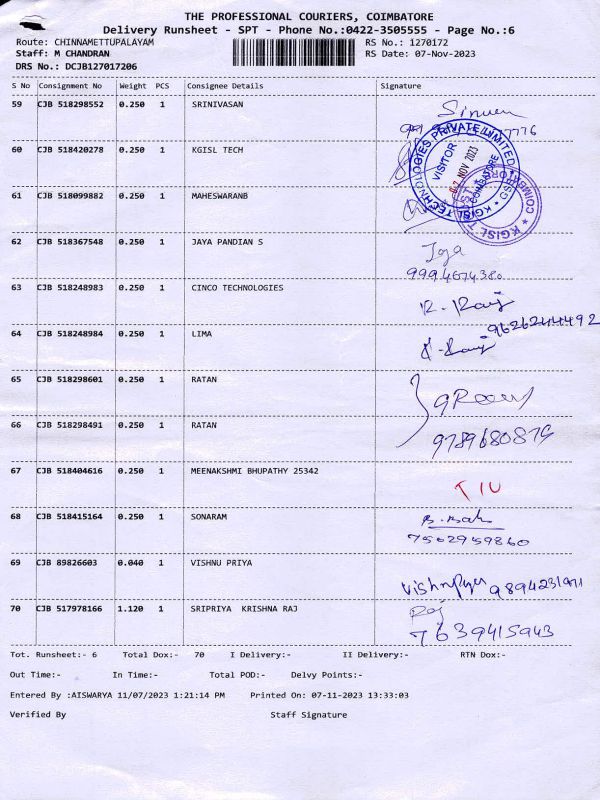 THE PROFESSIONAL COURIERS, COIMBATORE
Delivery Runsheet - SPT - Phone No.:0422-3505555 - Page No.:6
Route: CHINNAMETTUPALAYAM RS No.: 1270172
Staff: M CHANDRAN RS Date: 07-Nov-2023
DRS No.: DCJB127017206
S No Consignment No Weight PCS Consignee Details Signature
59 CJB 518298552 0.250 1 SRINIVASAN
60 CJB 518420278 0.250 1 KGISL TECH
TECHNOLOGIES PRIVATE LIMITED
VISITOR
NOV 2023
COIMBATORE
61 CJB 518099882 0.250 1 MAHESWARANB
62 CJB 518367548 0.250 1 JAYA PANDIAN S
9994674380
63 CJB 518248983 0.250 1 CINCO TECHNOLOGIES
R. Raj
9626244492
64 CJB 518248984 0.250 1 LIMA
65 CJB 518298601 0.250 1 RATAN
66 CJB 518298491 0.250 1 RATAN
67 CJB 518404616 0.250 1 MEENAKSHMI BHUPATHY 25342
68 CJB 518415164 0.250 1 SONARAM
7562959860
69 CJB 89826603 0.040 1 VISHNU PRIYA
70 CJB 517978166 1.120 1 SRIPRIYA KRISHNA RAJ
Raj
7639415943
Tot. Runsheet:- 6 Total Dox:- 70 I Delivery:- II Delivery:- RTN Dox:-
Out Time:- In Time:- Total POD:- Delvy Points:-
Entered By :AISWARYA 11/07/2023 1:21:14 PM Printed On: 07-11-2023 13:33:03
Verified By Staff Signature